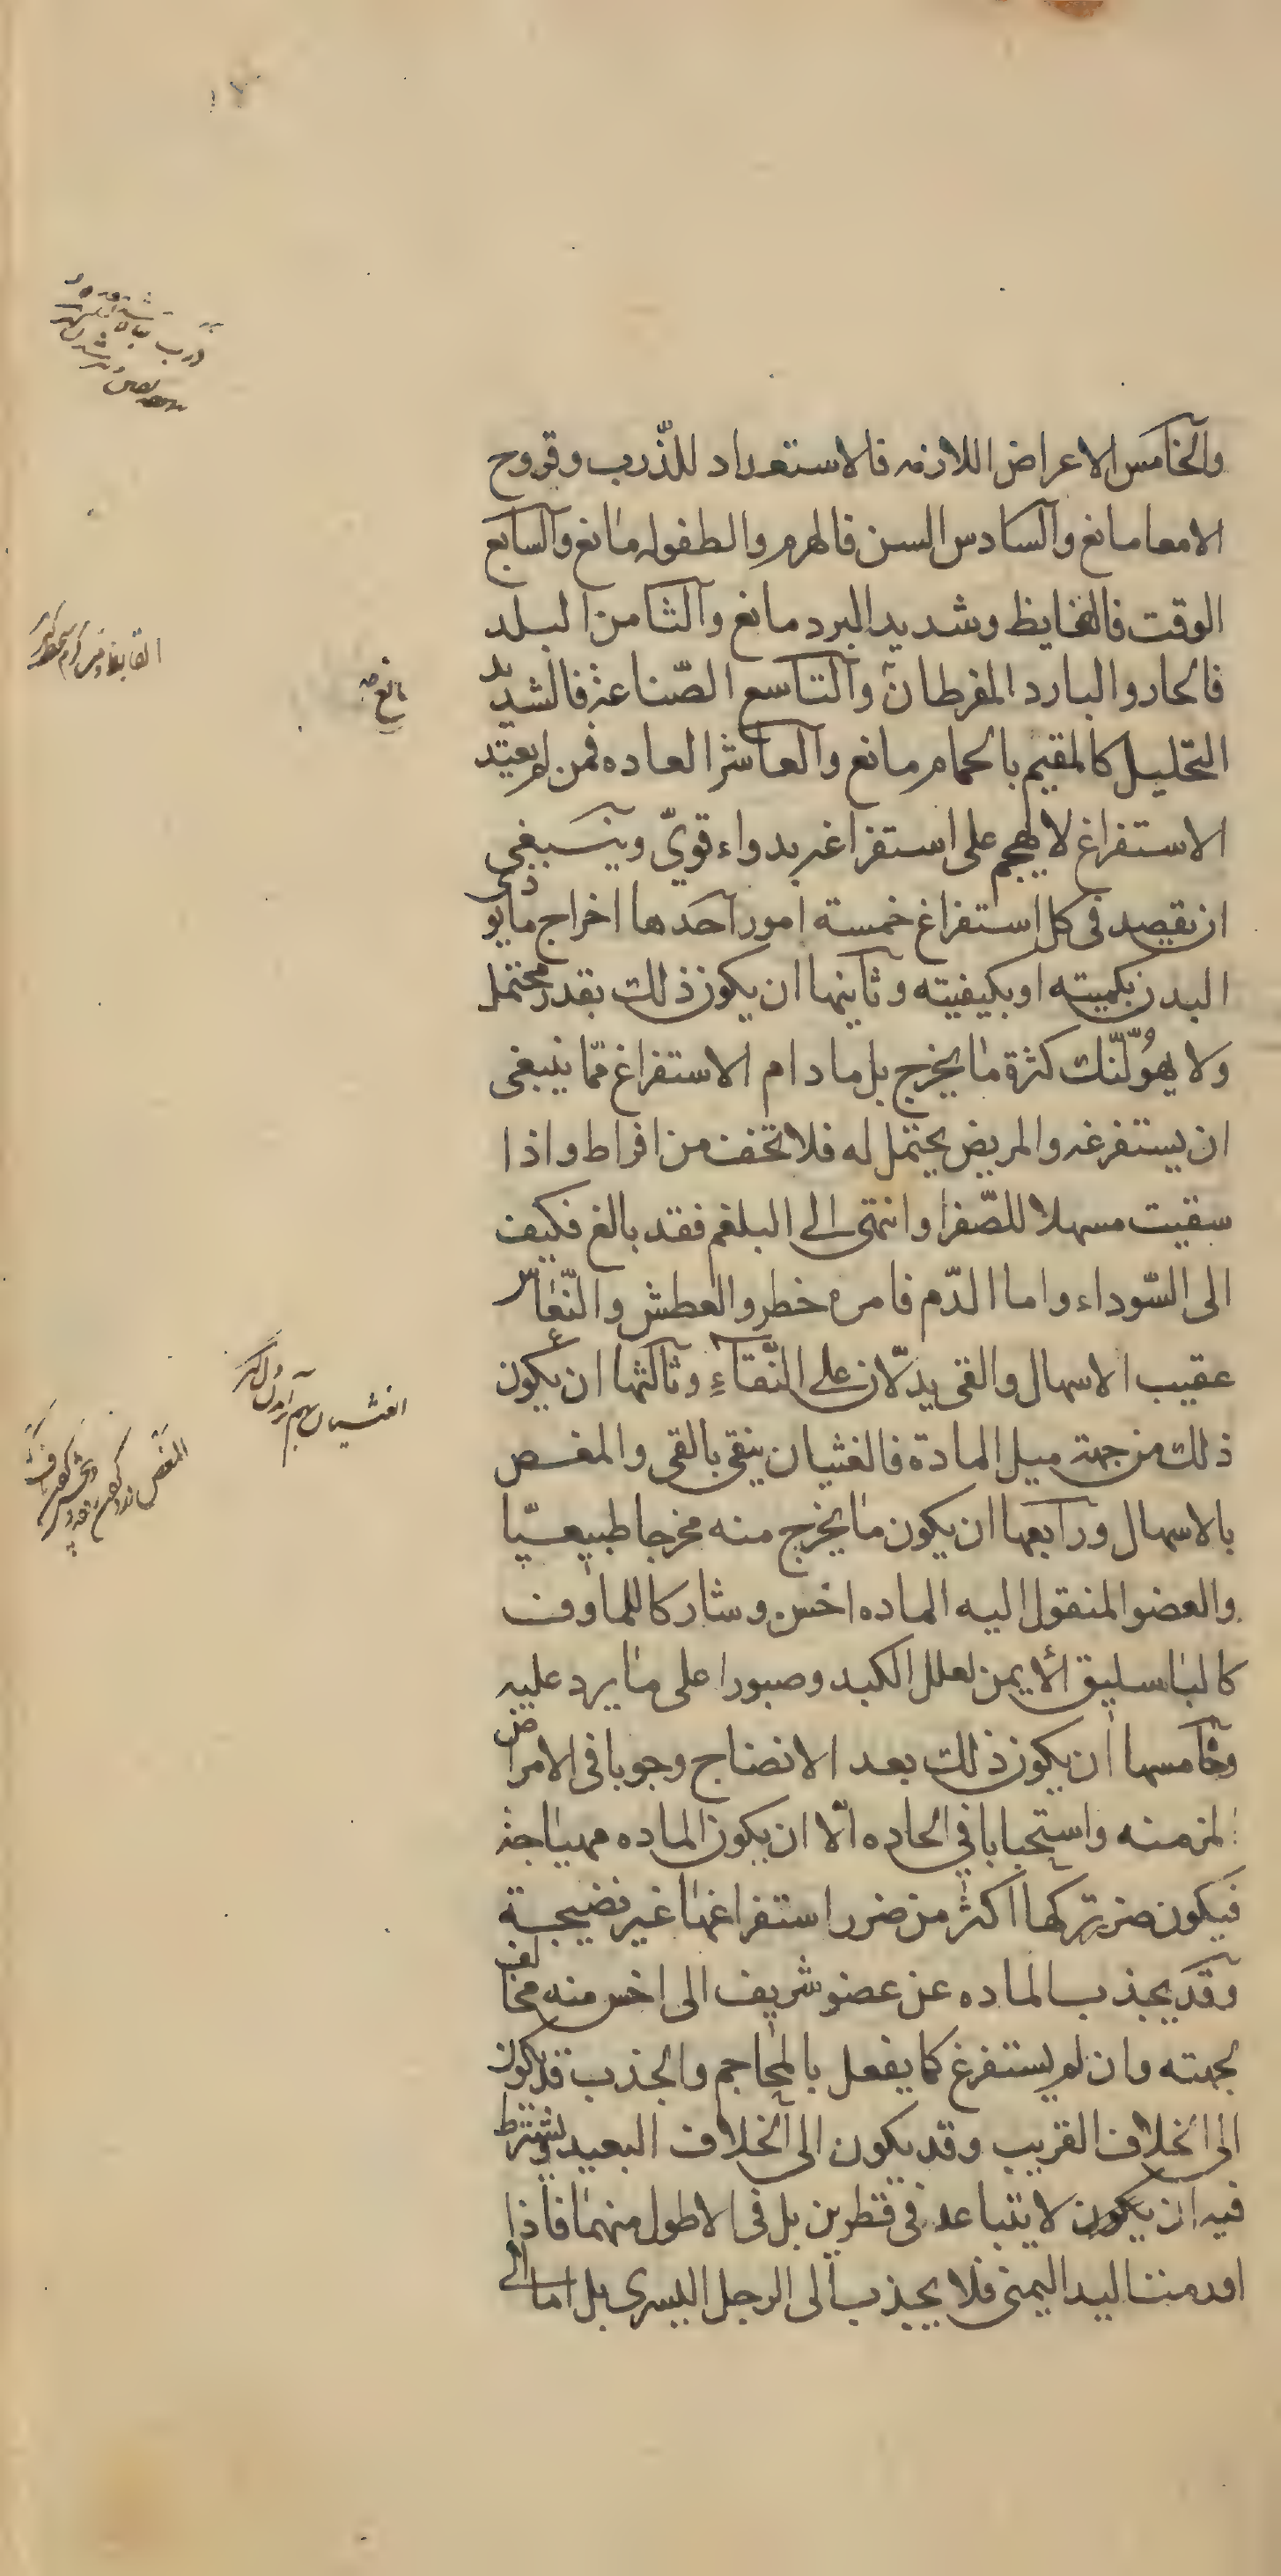 والخامس الاعراض اللازمه فالاستعداد للذّرب وقروح
الامعا مانع والسادس السن فالهرم والطفوله مانع والسابع
الوقت فالقايظ وشديد البرد مانع والثامن البلد
فالحار والبارد المفرطان والتاسع الصّناعة فالشديد
مانع
التحليل كالمقيم بالحمام مانع والعاشر العاده فمن لم يعتد
الاستفراغ لا يهجم على استفراغه بدواء قويّ وينبغي
ان يقصد فى كل استفراغ خمسة امور احدها اخراج مايوذى
البدن بكميته او بكيفيته وثانيها ان يكون ذلك بقدر محتمل
ولا يهوّلنّك كثرة ما يخرج بل ما دام الاستفراغ ممّا ينبغى
ان يستفرغه والمريض يحتمل له فلا تخف من افراط واذا
سقيت مسهلا للصّفرا وانتهى الى البلغم فقد بالغ فكيف
الى السّوداء واما الدّم فامره خطر والعطش والنّعاس
عقيب الاسهال والقى يدلّان على النّقاء وثالثها ان يكون
ذلك من جهة ميل المادة فالغثيان ينقى بالقى والمغص
بالاسهال ورابعها ان يكون ما يخرج منه مخرجا طبيعيّا
والعضو المنقول اليه الماده اخس ومشاركا للماوف
كالباسليق الأيمن لعلل الكبد وصبورا على ما يرد عليه
وخامسها ان يكون ذلك بعد الانضاج وجوبا فى الامراض
المزمنه واستحبابا في الحاده الّا ان يكون الماده مهياجة
فيكون ضرر تركها اكثر من ضرر استفراغها غير نضيجة
وقد يجذب الماده عن عضو شريف الى اخس منه مخالف
لجهته وان لم يستفرغ كما يفعل بالمحاجم والجذب قد يكون
الى الخلاف القريب وقد يكون الى الخلاف البعيد ويشترط
فيه ان يكون لا يتباعد فى قطرين بل فى الاطول منهما فاذا
اورمت اليد اليمنى فلا يجذب الى الرجل اليسرى بل اما الى